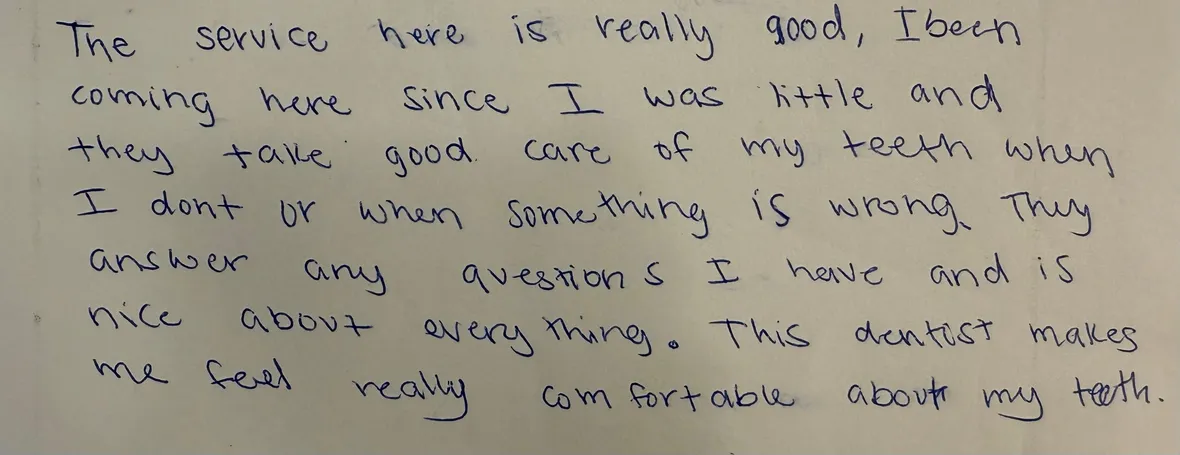 The service here is really good, I been
coming here since I was little and
they take good care of my teeth when
I dont or when something is wrong. They
answer any questions I have and is
nice about everything. This dentist makes
me feel really comfortable about my teeth.